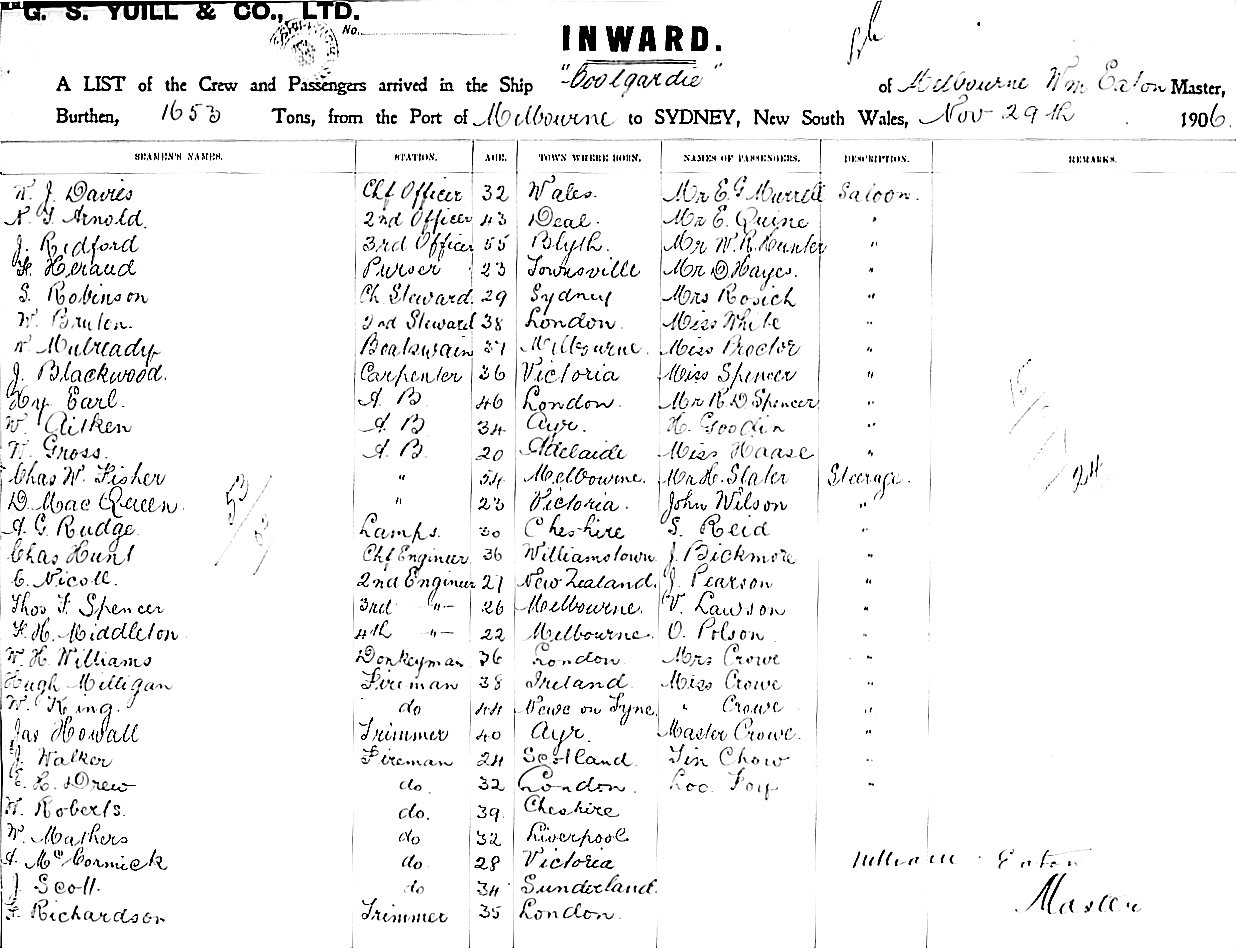 G. S. YUILL & CO., LTD.
No.
INWARD.
A LIST of the Crew and Passengers arrived in the Ship "Coolgardie" of Melbourne Wm Eaton Master,
Burthen, 1653 Tons, from the Port of Melbourne to SYDNEY, New South Wales, Nov 29th 1906.
SEAMEN'S NAMES. STATION. AGE. TOWN WHERE BORN. NAMES OF PASSENGERS. DESCRIPTION. REMARKS.
W. J. Davies Chf Officer 32 Wales. Mr E. G Murrell Saloon.
Arnold. 2nd Officer 43 Deal. Mr E. Quine "
J. Redford 3rd Officer 55 Blyth. Mr W. R. Hunter "
Heraud Purser 23 Townsville Mr D Hayes. "
S. Robinson Ch. Steward. 29 Sydney Mrs Rosich "
W. Bruten. 2nd Steward 38 London. Miss White "
Mulready Boatswain 37 Melbourne. Miss Proctor "
J. Blackwood. Carpenter 36 Victoria Miss Spencer "
Hy. Earl. A. B. 46 London. Mr R. D Spencer "
W. Aitken A. B 34 Ayr. H. Goodin "
W. Gross. A. B. 20 Adelaide Miss Haase "
Chas W. Fisher " 54 Melbourne. Mr H. Slater Steerage.
D. Mac Queen. " 23 Victoria. John Wilson "
A. G. Rudge. Lamps. 30 Cheshire S. Reid "
Chas Hunt Chf Engineer 36 Williamstown J. Bickmore "
C. Nicoll. 2nd Engineer 27 New Zealand. J. Pearson "
Thos F. Spencer 3rd " 26 Melbourne. V. Lawson "
F. H. Middleton 4th " 22 Melbourne. O. Polson "
W. H. Williams Donkeyman 36 London Mrs Crowe "
Hugh Milligan Fireman 38 Ireland. Miss Crowe "
W. King. do 44 Newc on Tyne. " Crowe "
Jas Howall Trimmer 40 Ayr. Master Crowe. "
J. Walker Fireman 24 Scotland. Tin Chow "
E. H. Drew do. 32 London. Loo. Foy "
W. Roberts. do. 39 Cheshire
W. Mathers do 32 Liverpool
A. McCormick do 28 Victoria
J. Scott. do 34 Sunderland.
F. Richardson Trimmer 35 London.
53
24
William Eaton
Master